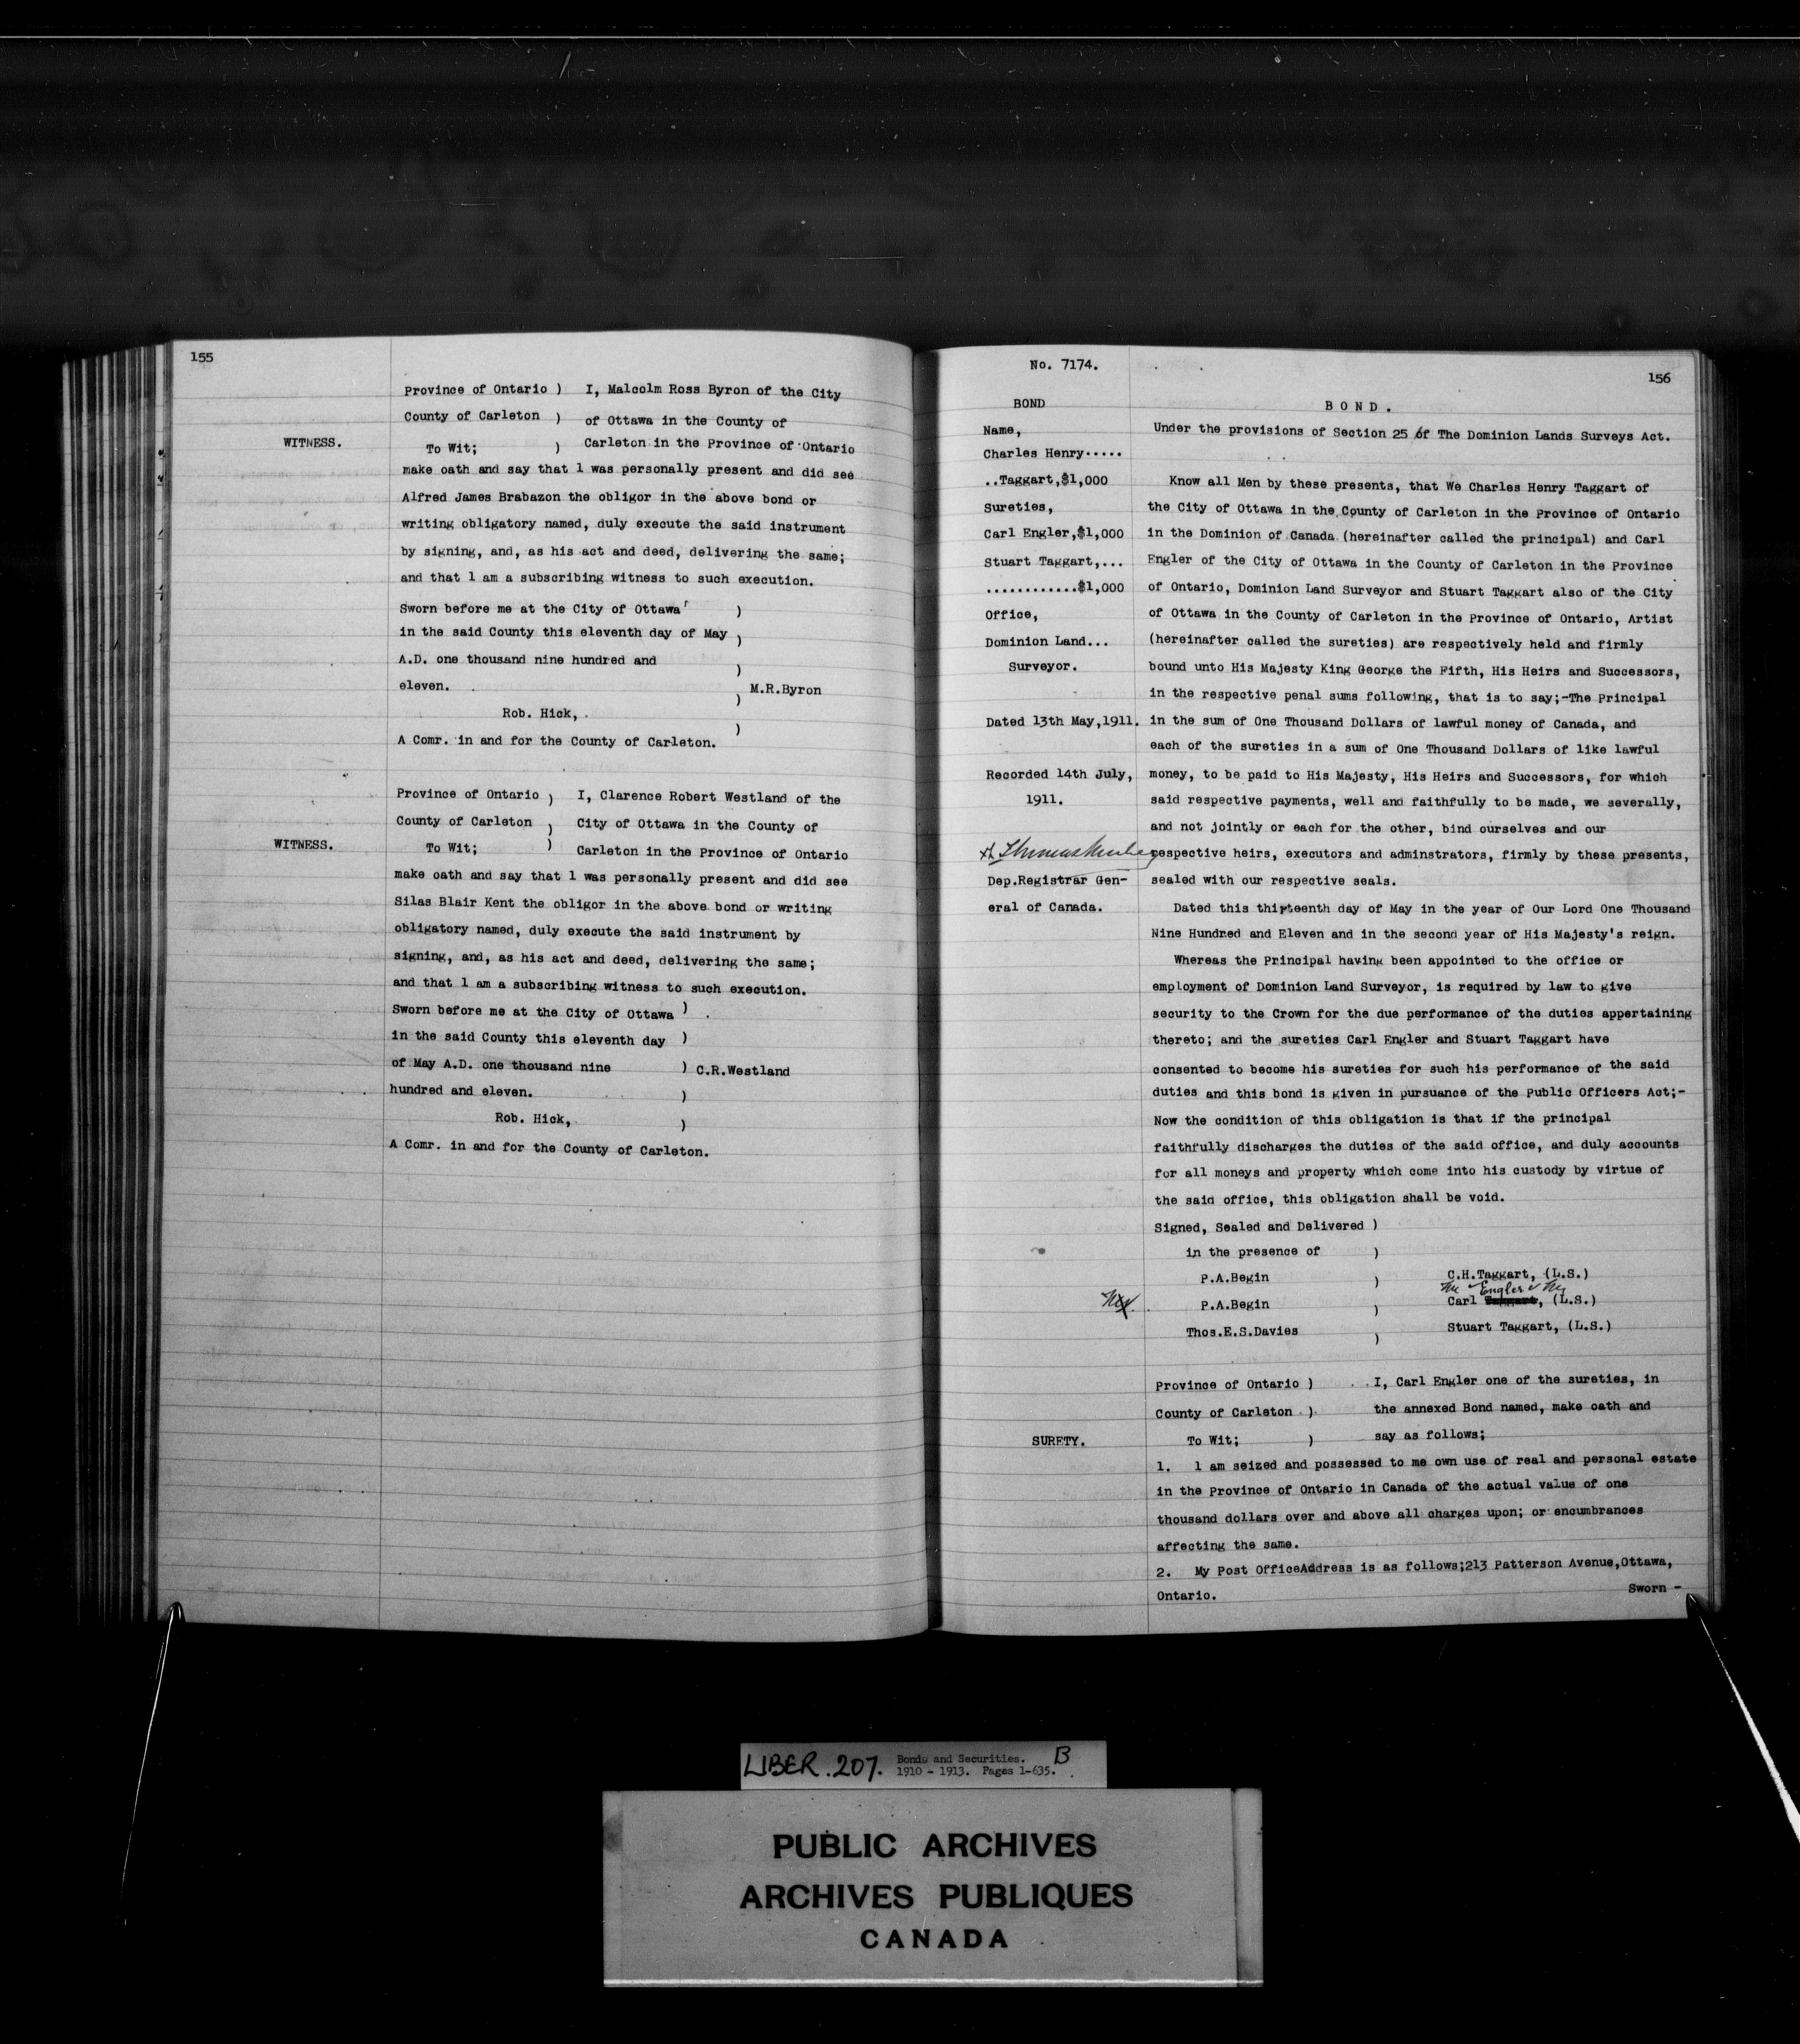 155
Province of Ontario ) I, Malcolm Ross Byron of the City
County of Carleton ) of Ottawa in the County of
WITNESS.
To Wit; ) Carleton in the Province of Ontario
make oath and say that l was personally present and did see
Alfred James Brabazon the obligor in the above bond or
writing obligatory named, duly execute the said instrument
by signing, and, as his act and deed, delivering the same;
and that l am a subscribing witness to such execution.
Sworn before me at the City of Ottawa )
in the said County this eleventh day of May )
A.D. one thousand nine hundred and )
eleven. ) M.R.Byron
Rob. Hick, )
A Comr. in and for the County of Carleton.
Province of Ontario ) I, Clarence Robert Westland of the
County of Carleton ) City of Ottawa in the County of
WITNESS.
To Wit; ) Carleton in the Province of Ontario
make oath and say that l was personally present and did see
Silas Blair Kent the obligor in the above bond or writing
obligatory named, duly execute the said instrument by
signing, and, as his act and deed, delivering the same;
and that l am a subscribing witness to such execution.
Sworn before me at the City of Ottawa )
in the said County this eleventh day )
of May A.D. one thousand nine ) C.R.Westland
hundred and eleven. )
Rob. Hick, )
A Comr. in and for the County of Carleton.
No. 7174.
156
BOND
Name,
Charles Henry.....
..Taggart,$1,000
Sureties,
Carl Engler,$1,000
Stuart Taggart,...
............$1,000
Office,
Dominion Land...
Surveyor.
Dated 13th May,1911.
Recorded 14th July,
1911.
Dep.Registrar Gen-
eral of Canada.
BOND.
Under the provisions of Section 25 of The Dominion Lands Surveys Act.
Know all Men by these presents, that We Charles Henry Taggart of
the City of Ottawa in the County of Carleton in the Province of Ontario
in the Dominion of Canada (hereinafter called the principal) and Carl
Engler of the City of Ottawa in the County of Carleton in the Province
of Ontario, Dominion Land Surveyor and Stuart Taggart also of the City
of Ottawa in the County of Carleton in the Province of Ontario, Artist
(hereinafter called the sureties) are respectively held and firmly
bound unto His Majesty King George the Fifth, His Heirs and Successors,
in the respective penal sums following, that is to say;-The Principal
in the sum of One Thousand Dollars of lawful money of Canada, and
each of the sureties in a sum of One Thousand Dollars of like lawful
money, to be paid to His Majesty, His Heirs and Successors, for which
said respective payments, well and faithfully to be made, we severally,
and not jointly or each for the other, bind ourselves and our
respective heirs, executors and adminstrators, firmly by these presents,
sealed with our respective seals.
Dated this thirteenth day of May in the year of Our Lord One Thousand
Nine Hundred and Eleven and in the second year of His Majesty's reign.
Whereas the Principal having been appointed to the office or
employment of Dominion Land Surveyor, is required by law to give
security to the Crown for the due performance of the duties appertaining
thereto; and the sureties Carl Engler and Stuart Taggart have
consented to become his sureties for such his performance of the said
duties and this bond is given in pursuance of the Public Officers Act;-
Now the condition of this obligation is that if the principal
faithfully discharges the duties of the said office, and duly accounts
for all moneys and property which come into his custody by virtue of
the said office, this obligation shall be void.
Signed, Sealed and Delivered )
in the presence of )
P.A.Begin ) C.H.Taggart, (L.S.)
Engler
P.A.Begin ) Carl Taggart, (L.S.)
Thos.E.S.Davies ) Stuart Taggart, (L.S.)
Province of Ontario ) I, Carl Engler one of the sureties, in
County of Carleton ) the annexed Bond named, make oath and
SURETY.
To Wit; ) say as follows;
1. l am seized and possessed to me own use of real and personal estate
in the Province of Ontario in Canada of the actual value of one
thousand dollars over and above all charges upon; or encumbrances
affecting the same.
2. My Post OfficeAddress is as follows;213 Patterson Avenue,Ottawa,
Ontario.
Sworn -
LIBER. 207. Bonds and Securities. B
1910 - 1913. Pages 1-635.
PUBLIC ARCHIVES
ARCHIVES PUBLIQUES
CANADA